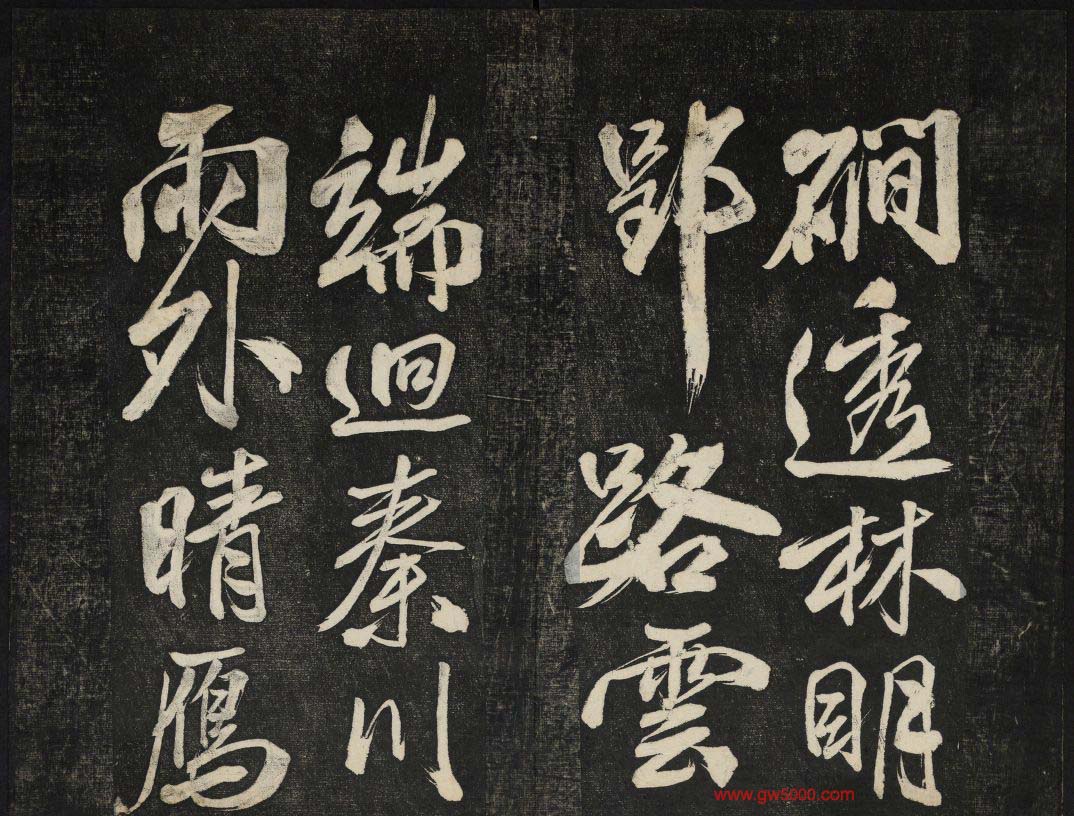 磵透林明
郢路雲
端迴秦川
雨外晴鴈
www.gw5000.com